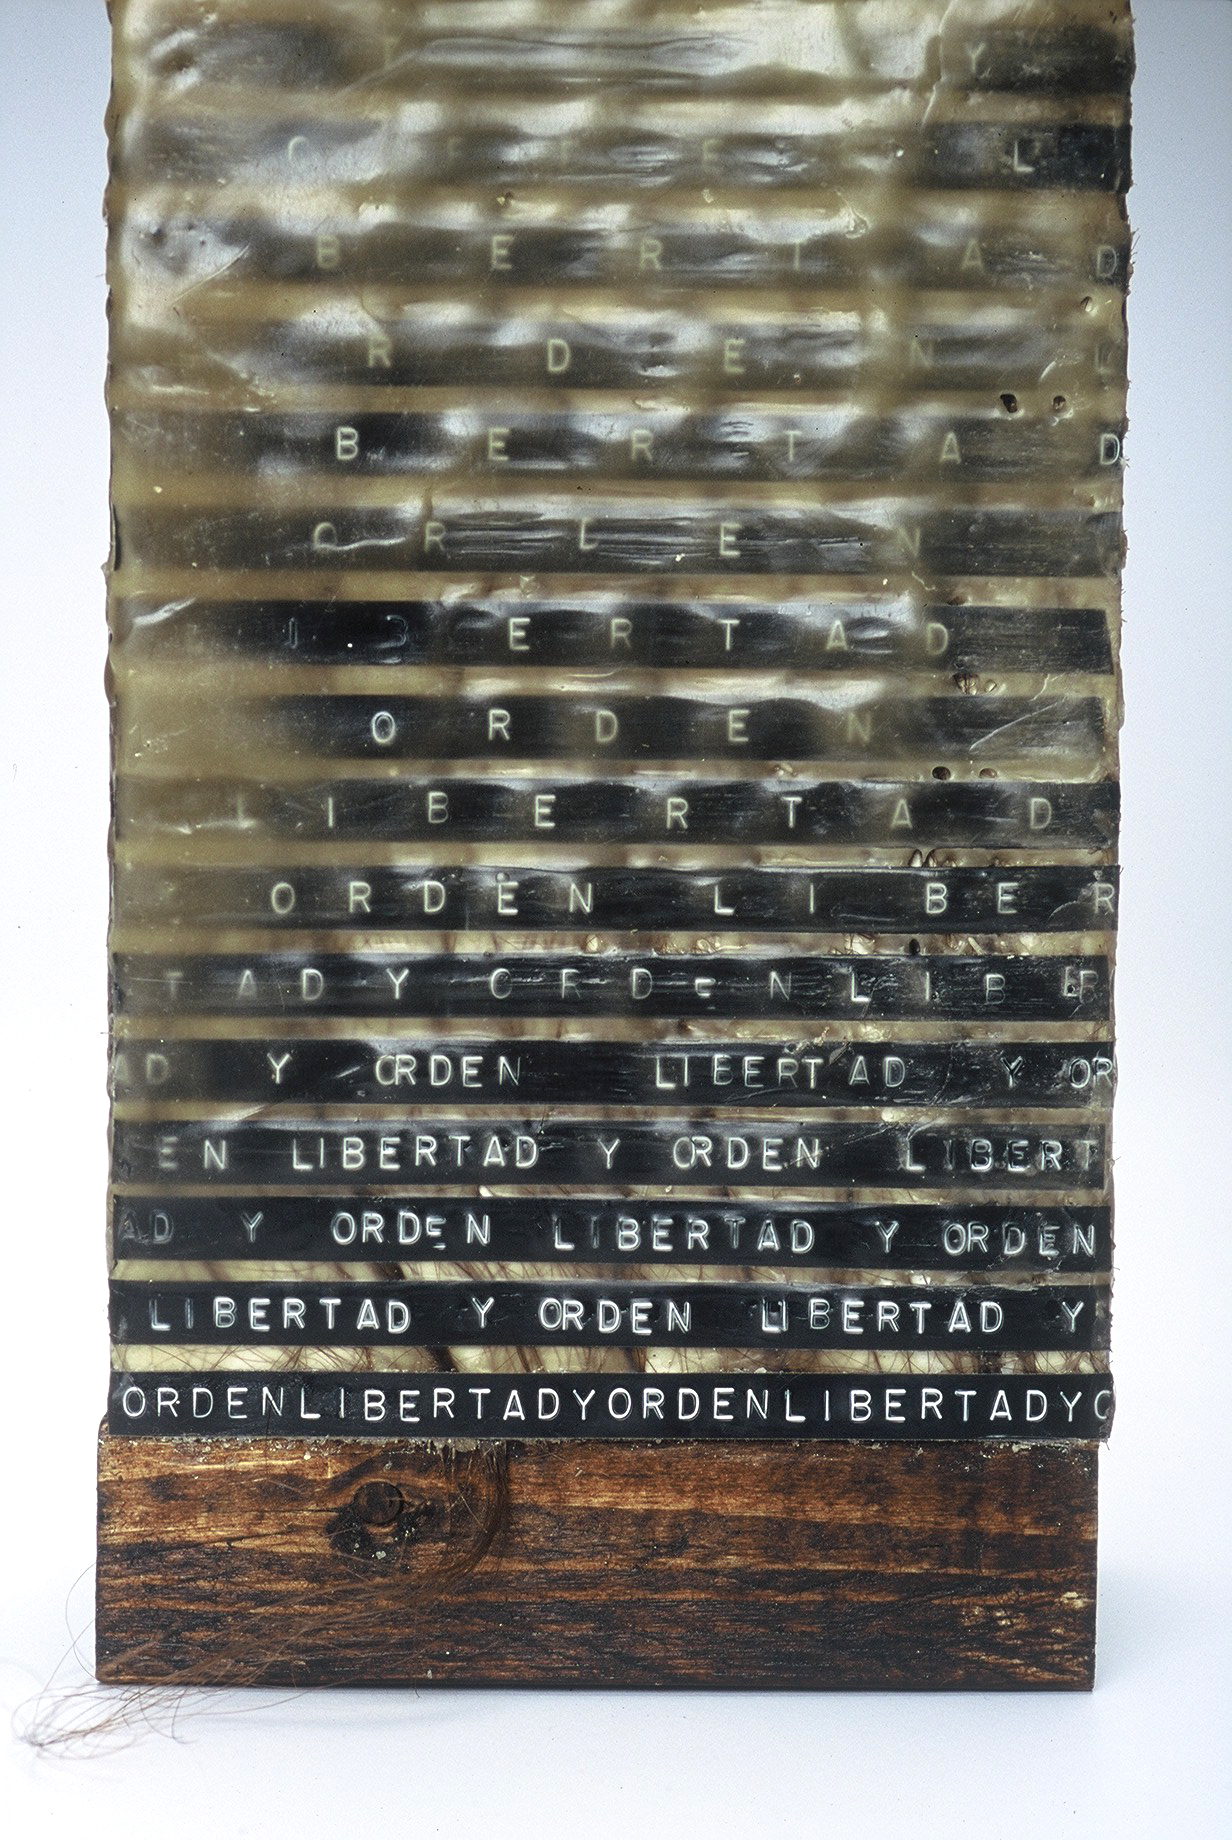 Y
C E L
B E R T A D
R D E N L
B E R T A D
O R L E N
I B E R T A D
O R D E N
L I B E R T A D
ORDEN LI BER
TADY ORDEN LIBER
AD Y ORDEN LIBERTAD Y OR
EN LIBERTAD Y ORDEN LIBERT
AD Y ORDEN LIBERTAD Y ORDEN
LIBERTAD Y ORDEN LIBERTAD Y
ORDENLIBERTADYORDENLIBERTADYO